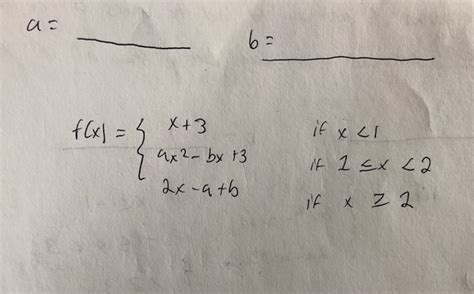 a= ________ b= ________
f(x) = { x+3 if x <1
ax² - bx +3 if 1 ≤ x < 2
2x - a + b if x ≥ 2